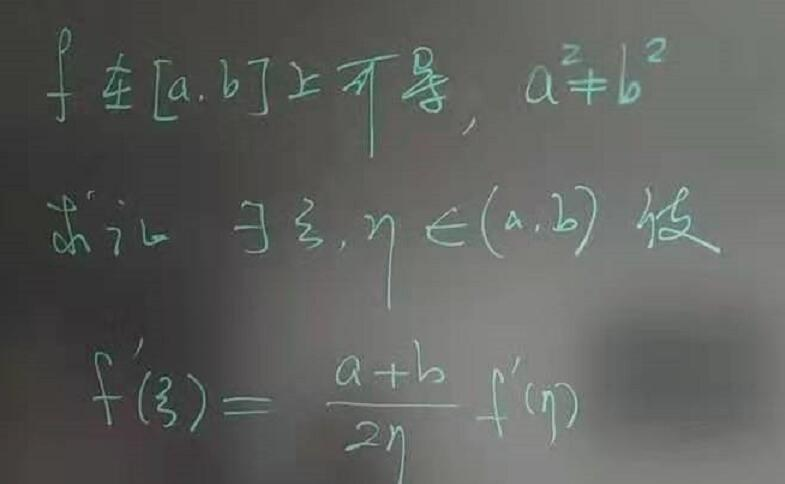 f 在 [a.b] 上可导, a²≠b²
求证 ∃ ξ, η ∈ (a.b) 使
f'(ξ) = \frac{a+b}{2η} f'(η)